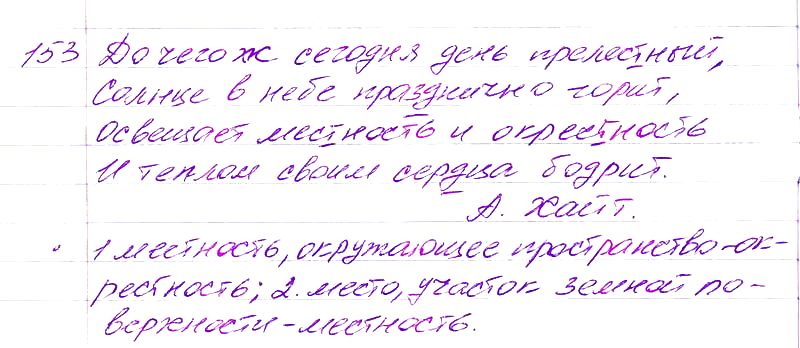 153 До чего ж сегодня день прелестный,
Солнце в небе празднично горит,
Освещает местность и окрестность
И теплом своим сердца бодрит.
А. Хайт.
1 местность, окружающее пространство-ок-
рестность; 2. место, участок земной по-
верхности-местность.